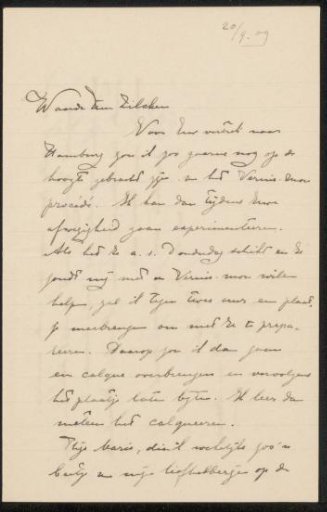 20/9.09
Waarde Heer Zilcken
Voor Uw vertrek naar
Hamburg zou ik zoo gaarne nog op de
hoogte gebracht zijn van het Vernis mou
procédé. Ik kan dan tijdens Uwe
afwezigheid gaan experimenteeren.
Als het U a.s. Donderdag schikt en U
zoudt mij met een Vernis-mou willen
helpen, zal ik tegen twee uur een plaat
je meebrengen om met U te prepa-
reeren. Daarop zou ik dan gaan
een calque overbrengen en vervolgens
het plaatje laten bijten. Ik leer dan
meteen het calqueeren.
Thijs Maris, die ik wekelijks zoo'n
op de